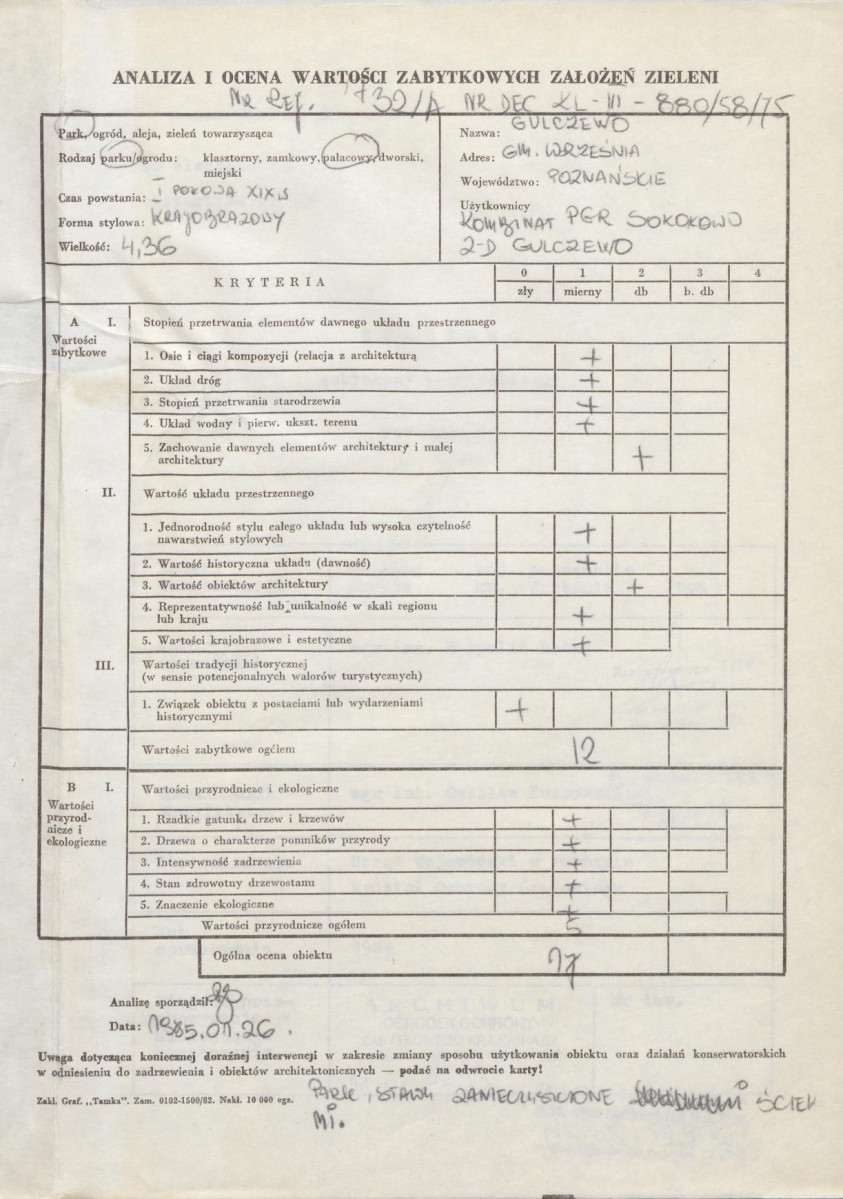 ANALIZA I OCENA WARTOŚCI ZABYTKOWYCH ZAŁOŻEŃ ZIELENI
NR REJ. 1732/A NR DEC KL-III-880/58/75
Park, ogród, aleja, zieleń towarzysząca
Rodzaj parku/ogrodu: klasztorny, zamkowy, pałacowy/dworski,
miejski
Czas powstania: I POŁOWA XIX w
Forma stylowa: KRAJOBRAZOWY
Wielkość: 4,36
Nazwa: GULCZEWO
Adres: GM. WRZEŚNIA
Województwo: POZNAŃSKIE
Użytkownicy
KOMBINAT PGR SOKOŁOWO
Z-D GULCZEWO
KRYTERIA
0 1 2 3 4
zły mierny db b. db
A I. Stopień przetrwania elementów dawnego układu przestrzennego
Wartości
zabytkowe
1. Osie i ciągi kompozycji (relacja z architekturą +
2. Układ dróg +
3. Stopień przetrwania starodrzewia +
4. Układ wodny i pierw. ukszt. terenu +
5. Zachowanie dawnych elementów architektury i małej
architektury +
II. Wartość układu przestrzennego
1. Jednorodność stylu całego układu lub wysoka czytelność
nawarstwień stylowych +
2. Wartość historyczna układu (dawność) +
3. Wartość obiektów architektury +
4. Reprezentatywność lub unikalność w skali regionu
lub kraju +
5. Wartości krajobrazowe i estetyczne +
III. Wartości tradycji historycznej
(w sensie potencjonalnych walorów turystycznych)
1. Związek obiektu z postaciami lub wydarzeniami
historycznymi +
Wartości zabytkowe ogółem 12
B I. Wartości przyrodnicze i ekologiczne
Wartości
przyrod-
nicze i
ekologiczne
1. Rzadkie gatunki drzew i krzewów +
2. Drzewa o charakterze pomników przyrody +
3. Intensywność zadrzewienia +
4. Stan zdrowotny drzewostanu +
5. Znaczenie ekologiczne +
Wartości przyrodnicze ogółem 5
Ogólna ocena obiektu 17
Analizę sporządził:
Data: 1985.01.26.
Uwaga dotycząca koniecznej doraźnej interwencji w zakresie zmiany sposobu użytkowania obiektu oraz działań konserwatorskich
w odniesieniu do zadrzewienia i obiektów architektonicznych — podać na odwrocie karty!
Zakł. Graf. „Tamka”. Zam. 0102-1500/82. Nakł. 10 000 egz.
PARK, STAWY ZANIECZYSZCZONE ŚCIEKA
MI.